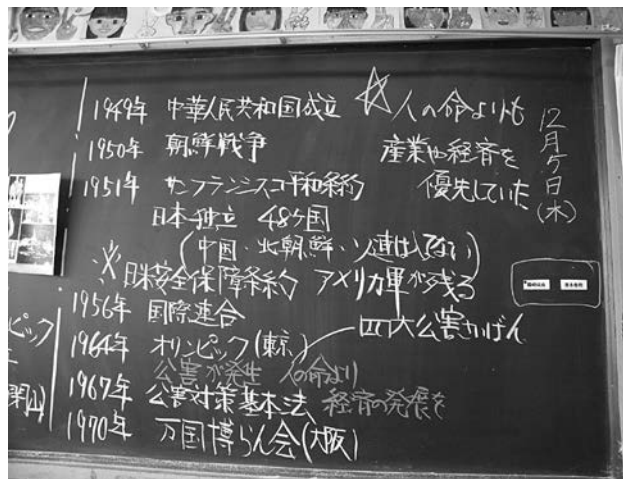 1949年 中華人民共和国成立
1950年 朝鮮戦争
1951年 サンフランシスコ平和条約
日本独立 48ヶ国
(中国・北朝鮮・ソ連は入てない)
※日米安全保障条約 アメリカ軍が残る
1956年 国際連合
1964年 オリンピック(東京) 四大公害かげん
公害が発生 人の命より
1967年 公害対策基本法 経済の発展を
1970年 万国博らん会(大阪)
☆人の命よりも
産業や経済を
優先していた
12月5日(木)
ピック